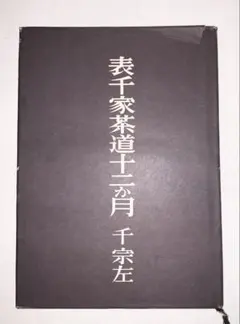 表千家茶道十二か月 千宗左